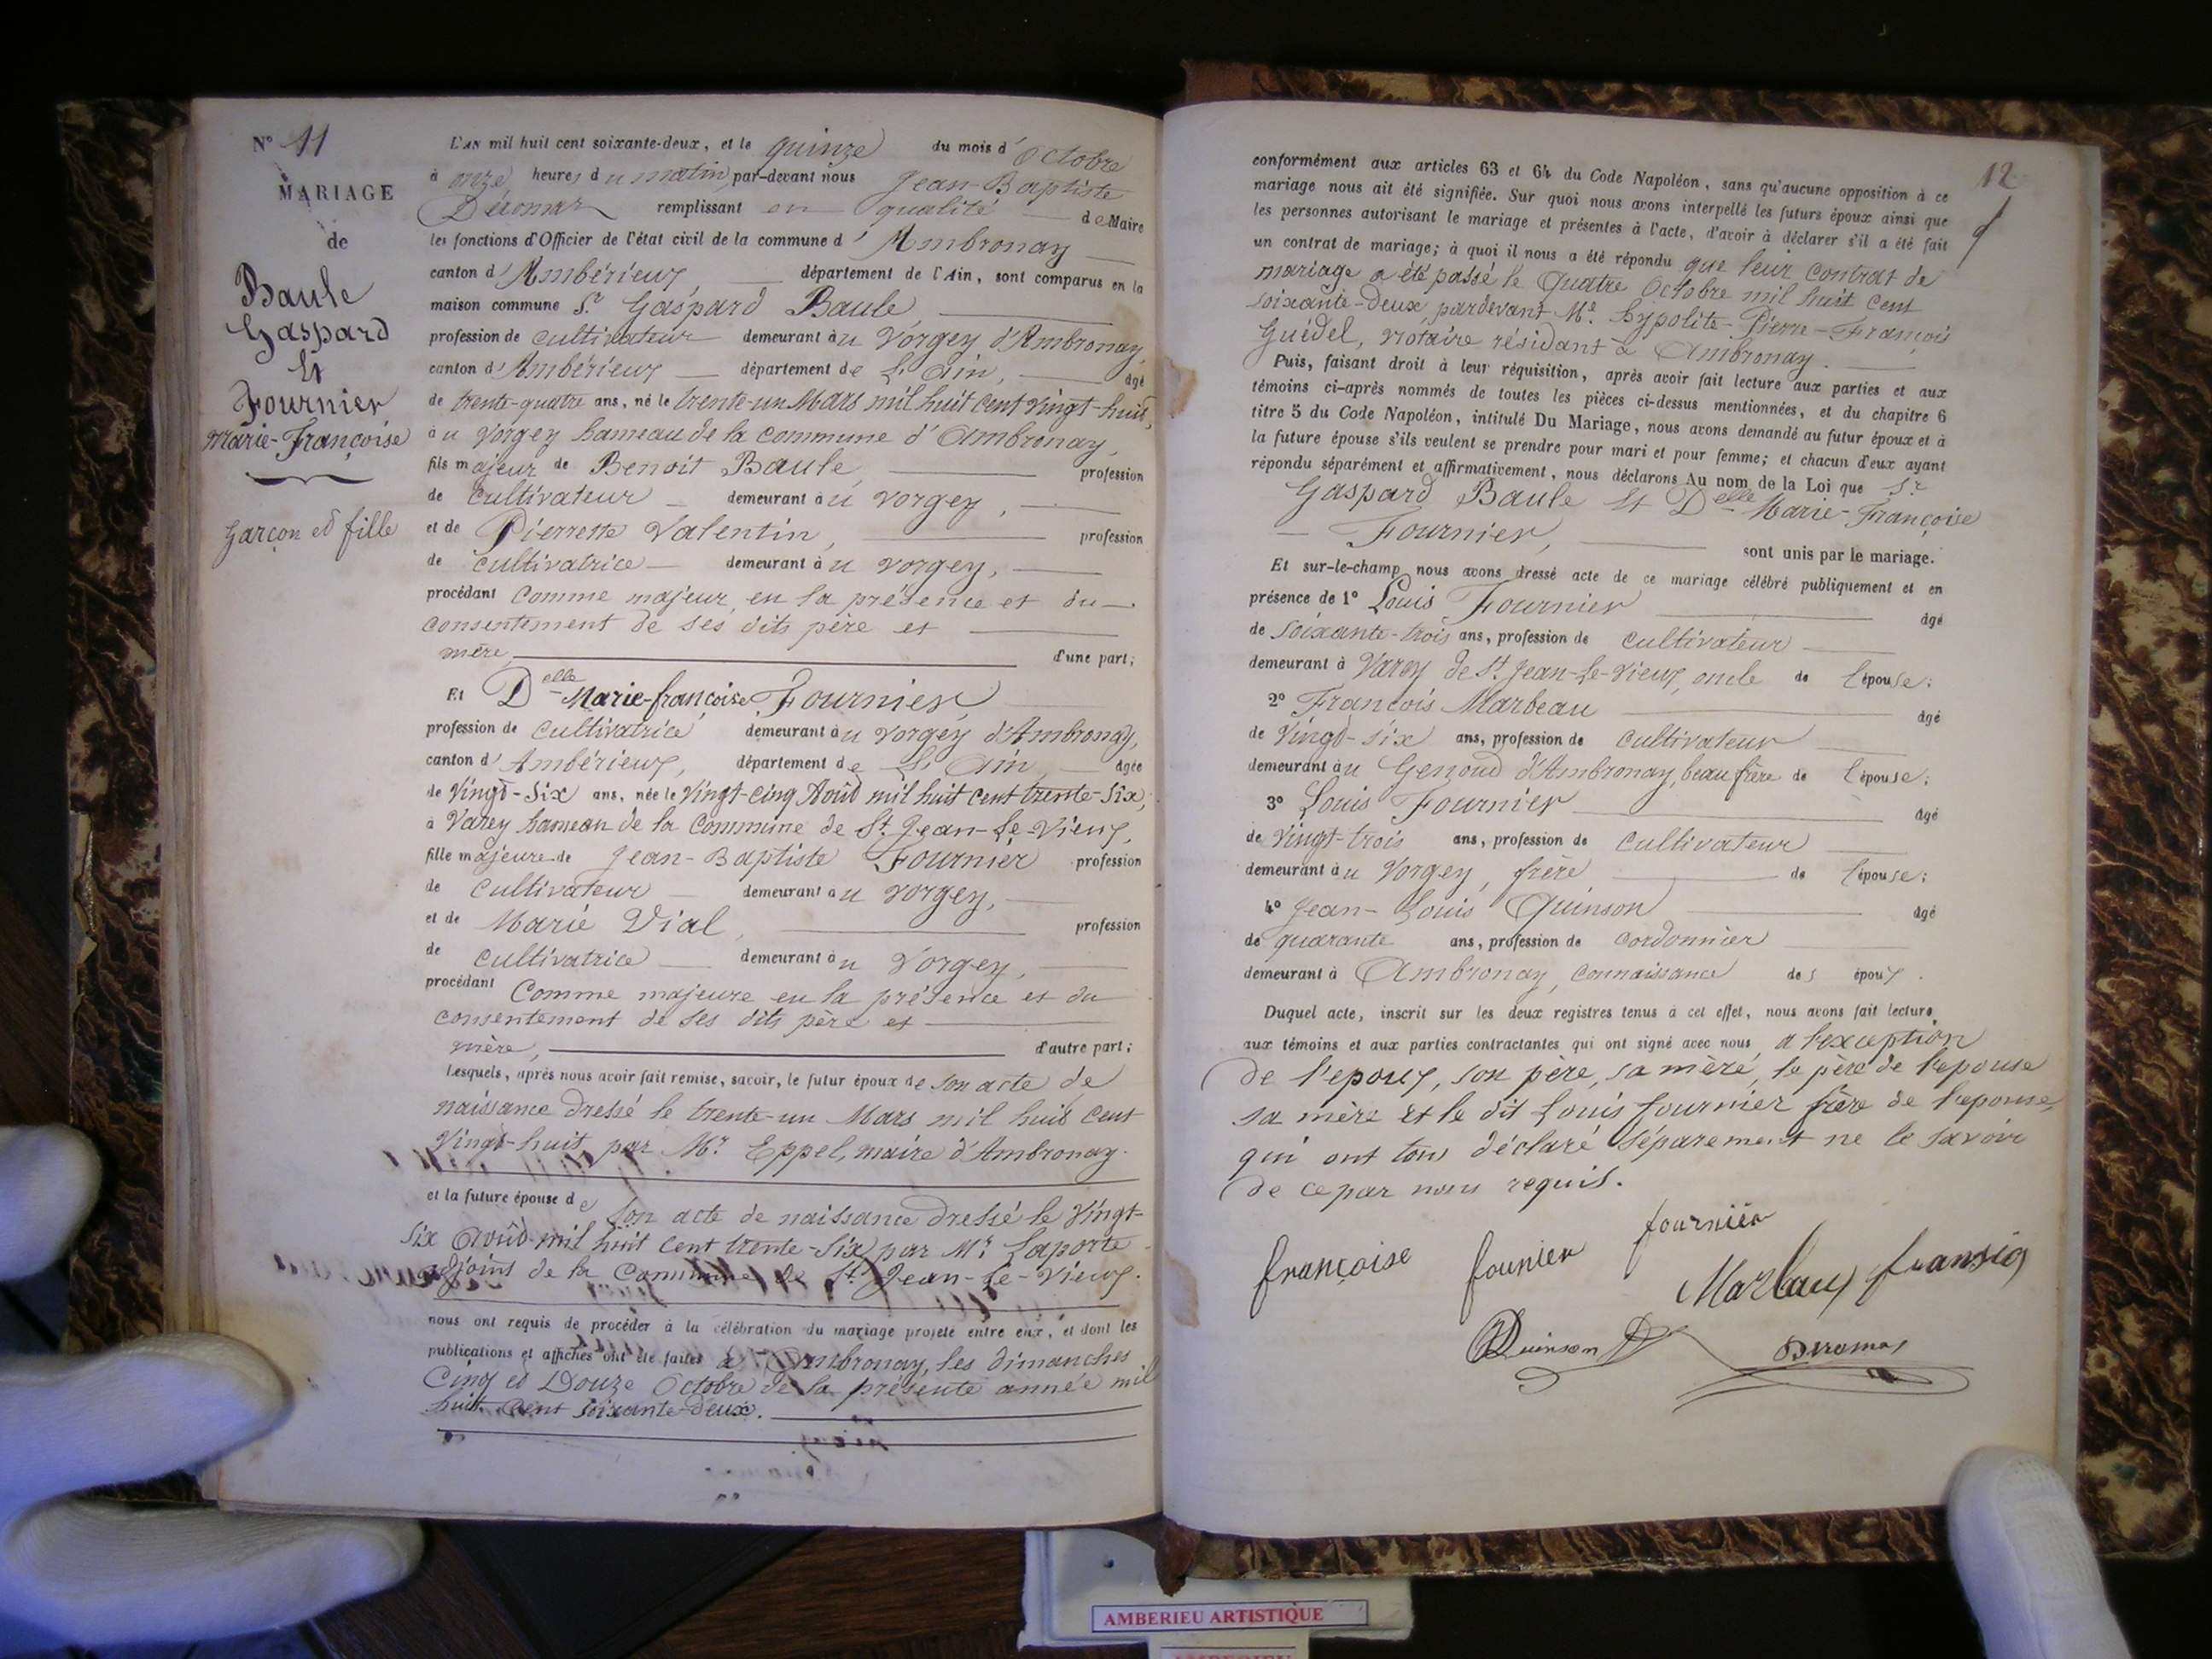 N° 11
MARIAGE
de
Baule
Gaspard
Et
Fournier
Marie-Françoise
Garçon et fille
L'AN mil huit cent soixante-deux, et le quinze du mois d'Octobre
à onze heures du matin, par-devant nous Jean-Baptiste
Deromas remplissant en qualité de Maire
les fonctions d'Officier de l'état civil de la commune d'Ambronay
canton d'Ambérieux département de l'Ain, sont comparus en la
maison commune Sr Gaspard Baule
profession de cultivateur demeurant au Vorgey d'Ambronay,
canton d'Ambérieux département de L'Ain, âgé
de trente-quatre ans, né le trente-un Mars mil huit cent vingt-huit,
au Vorgey hameau de la commune d'Ambronay,
fils majeur de Benoit Baule, profession
de cultivateur demeurant au Vorgey,
et de Pierrette Valentin, profession
de cultivatrice demeurant au Vorgey,
procédant comme majeur en la présence et du
consentement de ses dits père et
mère, d'une part;
Et Delle Marie-françoise Fournier,
profession de cultivatrice demeurant au Vorgey d'Ambronay,
canton d'Ambérieux, département de L'Ain, âgée
de Vingt-Six ans, née le vingt-cinq Août mil huit cent trente-six,
à Varey hameau de la Commune de St Jean-Le-Vieux,
fille majeure de Jean-Baptiste Fournier profession
de cultivateur demeurant au Vorgey,
et de Marie Vial, profession
de cultivatrice demeurant au Vorgey,
procédant Comme majeure en la présence et du
consentement de ses dits père et
mère, d'autre part;
Lesquels, après nous avoir fait remise, savoir, le futur époux de son acte de
naissance dressé le trente-un Mars mil huit cent
Vingt-huit par Mr Eppel, maire d'Ambronay.
et la future épouse de son acte de naissance dressé le Vingt-
six août mil huit cent trente-six par Mr Laporte
adjoint de la Commune de St Jean-Le-Vieux.
nous ont requis de procéder à la célébration du mariage projeté entre eux, et dont les
publications et affiches ont été faites à Ambronay, les dimanches
Cinq et Douze Octobre de la présente année mil
huit cent soixante-deux.
12
conformément aux articles 63 et 64 du Code Napoléon, sans qu'aucune opposition à ce
mariage nous ait été signifiée. Sur quoi nous avons interpellé les futurs époux ainsi que
les personnes autorisant le mariage et présentes à l'acte, d'avoir à déclarer s'il a été fait
un contrat de mariage; à quoi il nous a été répondu que leur contrat de
mariage a été passé le Quatre Octobre mil huit cent
soixante-deux pardevant Me hypolite-Pierre-François
Guédel, notaire résidant à Ambronay.
Puis, faisant droit à leur réquisition, après avoir fait lecture aux parties et aux
témoins ci-après nommés de toutes les pièces ci-dessus mentionnées, et du chapitre 6
titre 5 du Code Napoléon, intitulé Du Mariage, nous avons demandé au futur époux et à
la future épouse s'ils veulent se prendre pour mari et pour femme; et chacun d'eux ayant
répondu séparément et affirmativement, nous déclarons Au nom de la Loi que Sr
Gaspard Baule Et Delle Marie-Françoise
Fournier, sont unis par le mariage.
Et sur-le-champ nous avons dressé acte de ce mariage célébré publiquement et en
présence de 1° Louis Fournier âgé
de soixante-trois ans, profession de cultivateur
demeurant à Varey de St Jean-Le-Vieux, oncle de l'épouse;
2° François Marbeau âgé
de Vingt-six ans, profession de cultivateur
demeurant au Genoud d'Ambronay, beau frère de l'épouse;
3° Louis Fournier âgé
de Vingt-trois ans, profession de cultivateur
demeurant au Vorgey, frère de l'épouse;
4° Jean-Louis Quinson âgé
de quarante ans, profession de cordonnier
demeurant à Ambronay, connaissance des époux.
Duquel acte, inscrit sur les deux registres tenus à cet effet, nous avons fait lecture
aux témoins et aux parties contractantes qui ont signé avec nous à l'exception
de l'epoux, son père, sa mère, le père de l'epouse
sa mère et le dit Louis fournier frère de l'epouse,
qui ont tous déclaré séparement ne le savoir
de ce par nous requis.
françoise founier fournier
Marbaux fransia
Quinson Deromas
AMBERIEU ARTISTIQUE
AMBERIEU